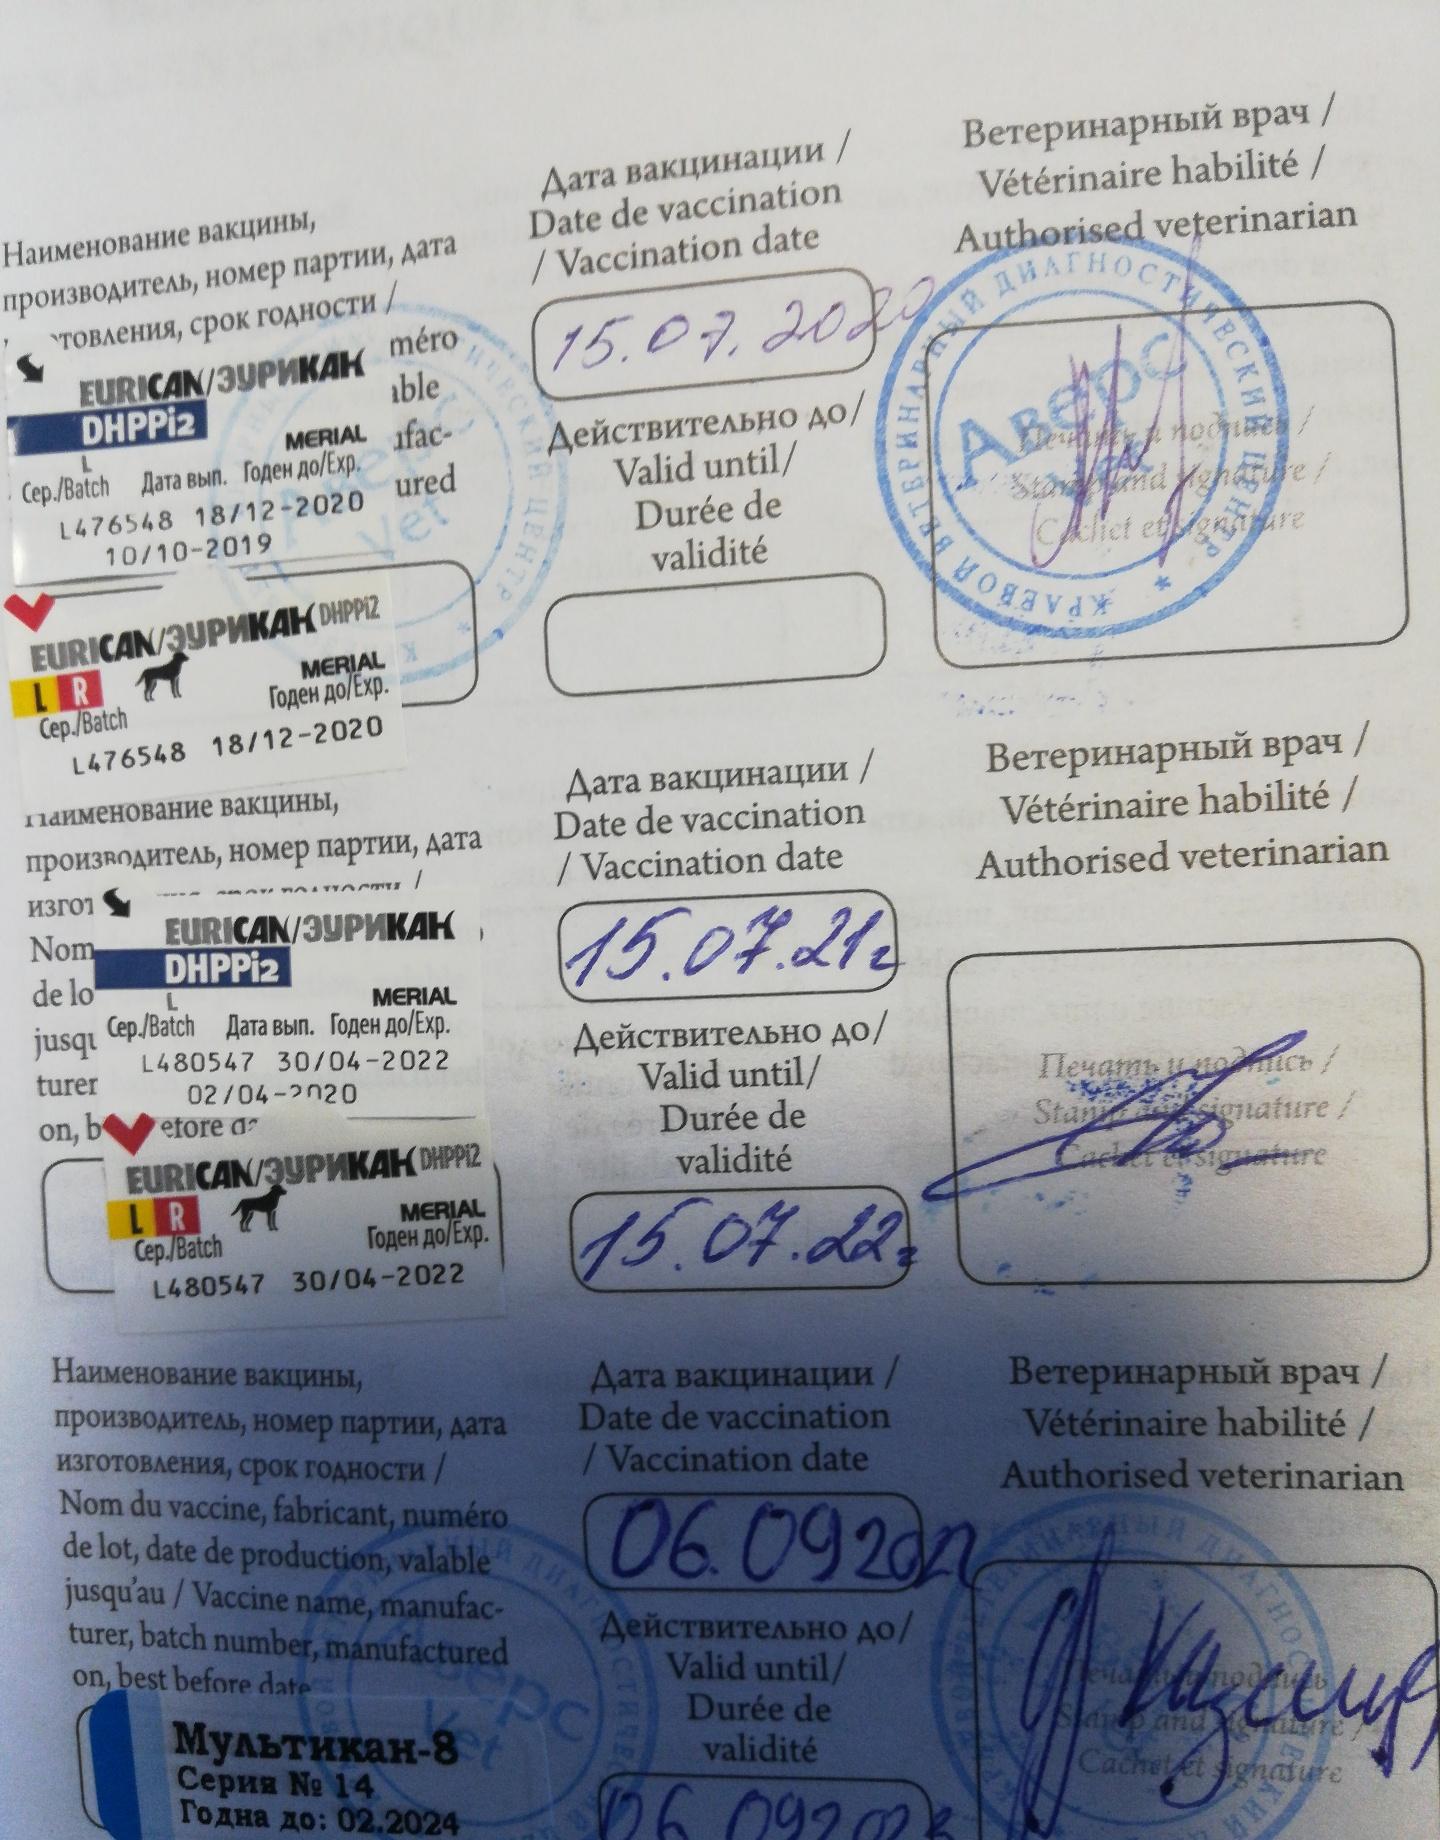 Наименование вакцины,
производитель, номер партии, дата
товления, срок годности /
méro
able
ifac-
ured
EURICAN/ЭУРИКАН
DHPPi2
L
MERIAL
Сер./Batch Дата вып. Годен до/Exp.
L476548 18/12-2020
10/10-2019
EURICAN/ЭУРИКАН DHPPi2
L R
MERIAL
Годен до/Exp.
Сер./Batch
L476548 18/12-2020
Дата вакцинации /
Date de vaccination
/ Vaccination date
15.07.2020
Действительно до/
Valid until/
Durée de
validité
Ветеринарный врач /
Vétérinaire habilité /
Authorised veterinarian
Печать и подпись /
Stamp and signature /
Cachet et signature
КРАЕВОЙ ВЕТЕРИНАРНЫЙ ДИАГНОСТИЧЕСКИЙ ЦЕНТР *
Аверс
Vet
Наименование вакцины,
производитель, номер партии, дата
изгот
Nom
de lo
jusqu
turer
on, b efore da
EURICAN/ЭУРИКАН
DHPPi2
L
MERIAL
Сер./Batch Дата вып. Годен до/Exp.
L480547 30/04-2022
02/04-2020
EURICAN/ЭУРИКАН DHPPi2
L R
MERIAL
Годен до/Exp.
Сер./Batch
L480547 30/04-2022
Дата вакцинации /
Date de vaccination
/ Vaccination date
15.07.21г
Действительно до/
Valid until/
Durée de
validité
15.07.22г
Ветеринарный врач /
Vétérinaire habilité /
Authorised veterinarian
Печать и подпись /
Stamp and signature /
Cachet et signature
Наименование вакцины,
производитель, номер партии, дата
изготовления, срок годности /
Nom du vaccine, fabricant, numéro
de lot, date de production, valable
jusqu'au / Vaccine name, manufac-
turer, batch number, manufactured
on, best before date
Аверс
Vet
Мультикан-8
Серия № 14
Годна до: 02.2024
Дата вакцинации /
Date de vaccination
/ Vaccination date
06.092022
Действительно до/
Valid until/
Durée de
validité
06.092023
Ветеринарный врач /
Vétérinaire habilité /
Authorised veterinarian
Печать и подпись
Stamp and signature /
Cachet et signature